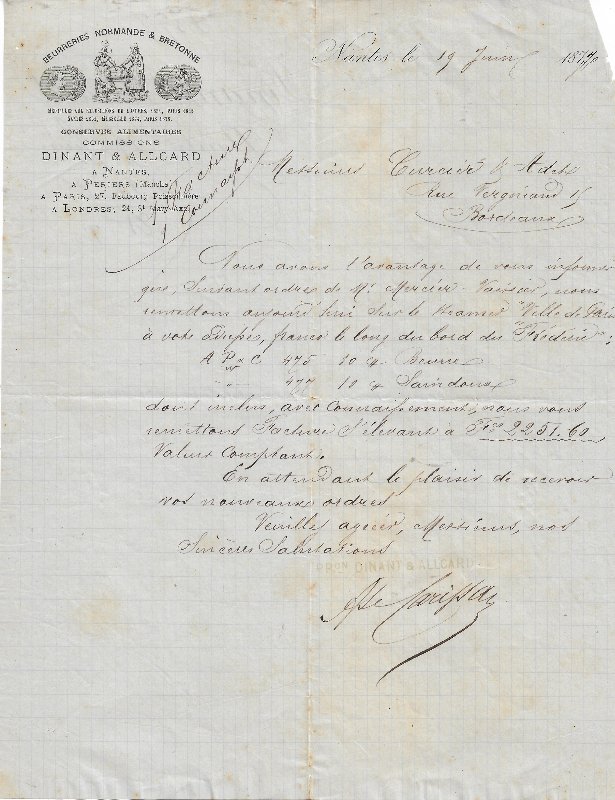 BEURRERIES NORMANDE & BRETONNE
CONSERVES ALIMENTAIRES
COMMISSIONS
DINANT & ALLCARD
A NANTES,
A PERIERS (Manche)
A PARIS, 27, Faubourg Poissonnière
A LONDRES, 24, St Mary Axe
1 facture
1 Connaisst
Nantes le 19 Juin 1877
Messieurs & Adet
Bordeaux
Nous avons l'avantage de vous informer
que, suivant ordres de Mr Mercier- nous
remettons aujourd'hui sur le steamer "Ville de Paris
à votre franco le long du bord des
A P & C 475 10 Beurre
" " 477 10 Saindoux
dont inclus, avec connaissement, nous vous
remettons Facture s'élevant à Frs 2251.60
Valeur Comptant.
En attendant le plaisir de recevoir
vos nouveaux ordres
Veuillez agréer, Messieurs, nos
Sincères Salutations
PRON DINANT & ALLCARD